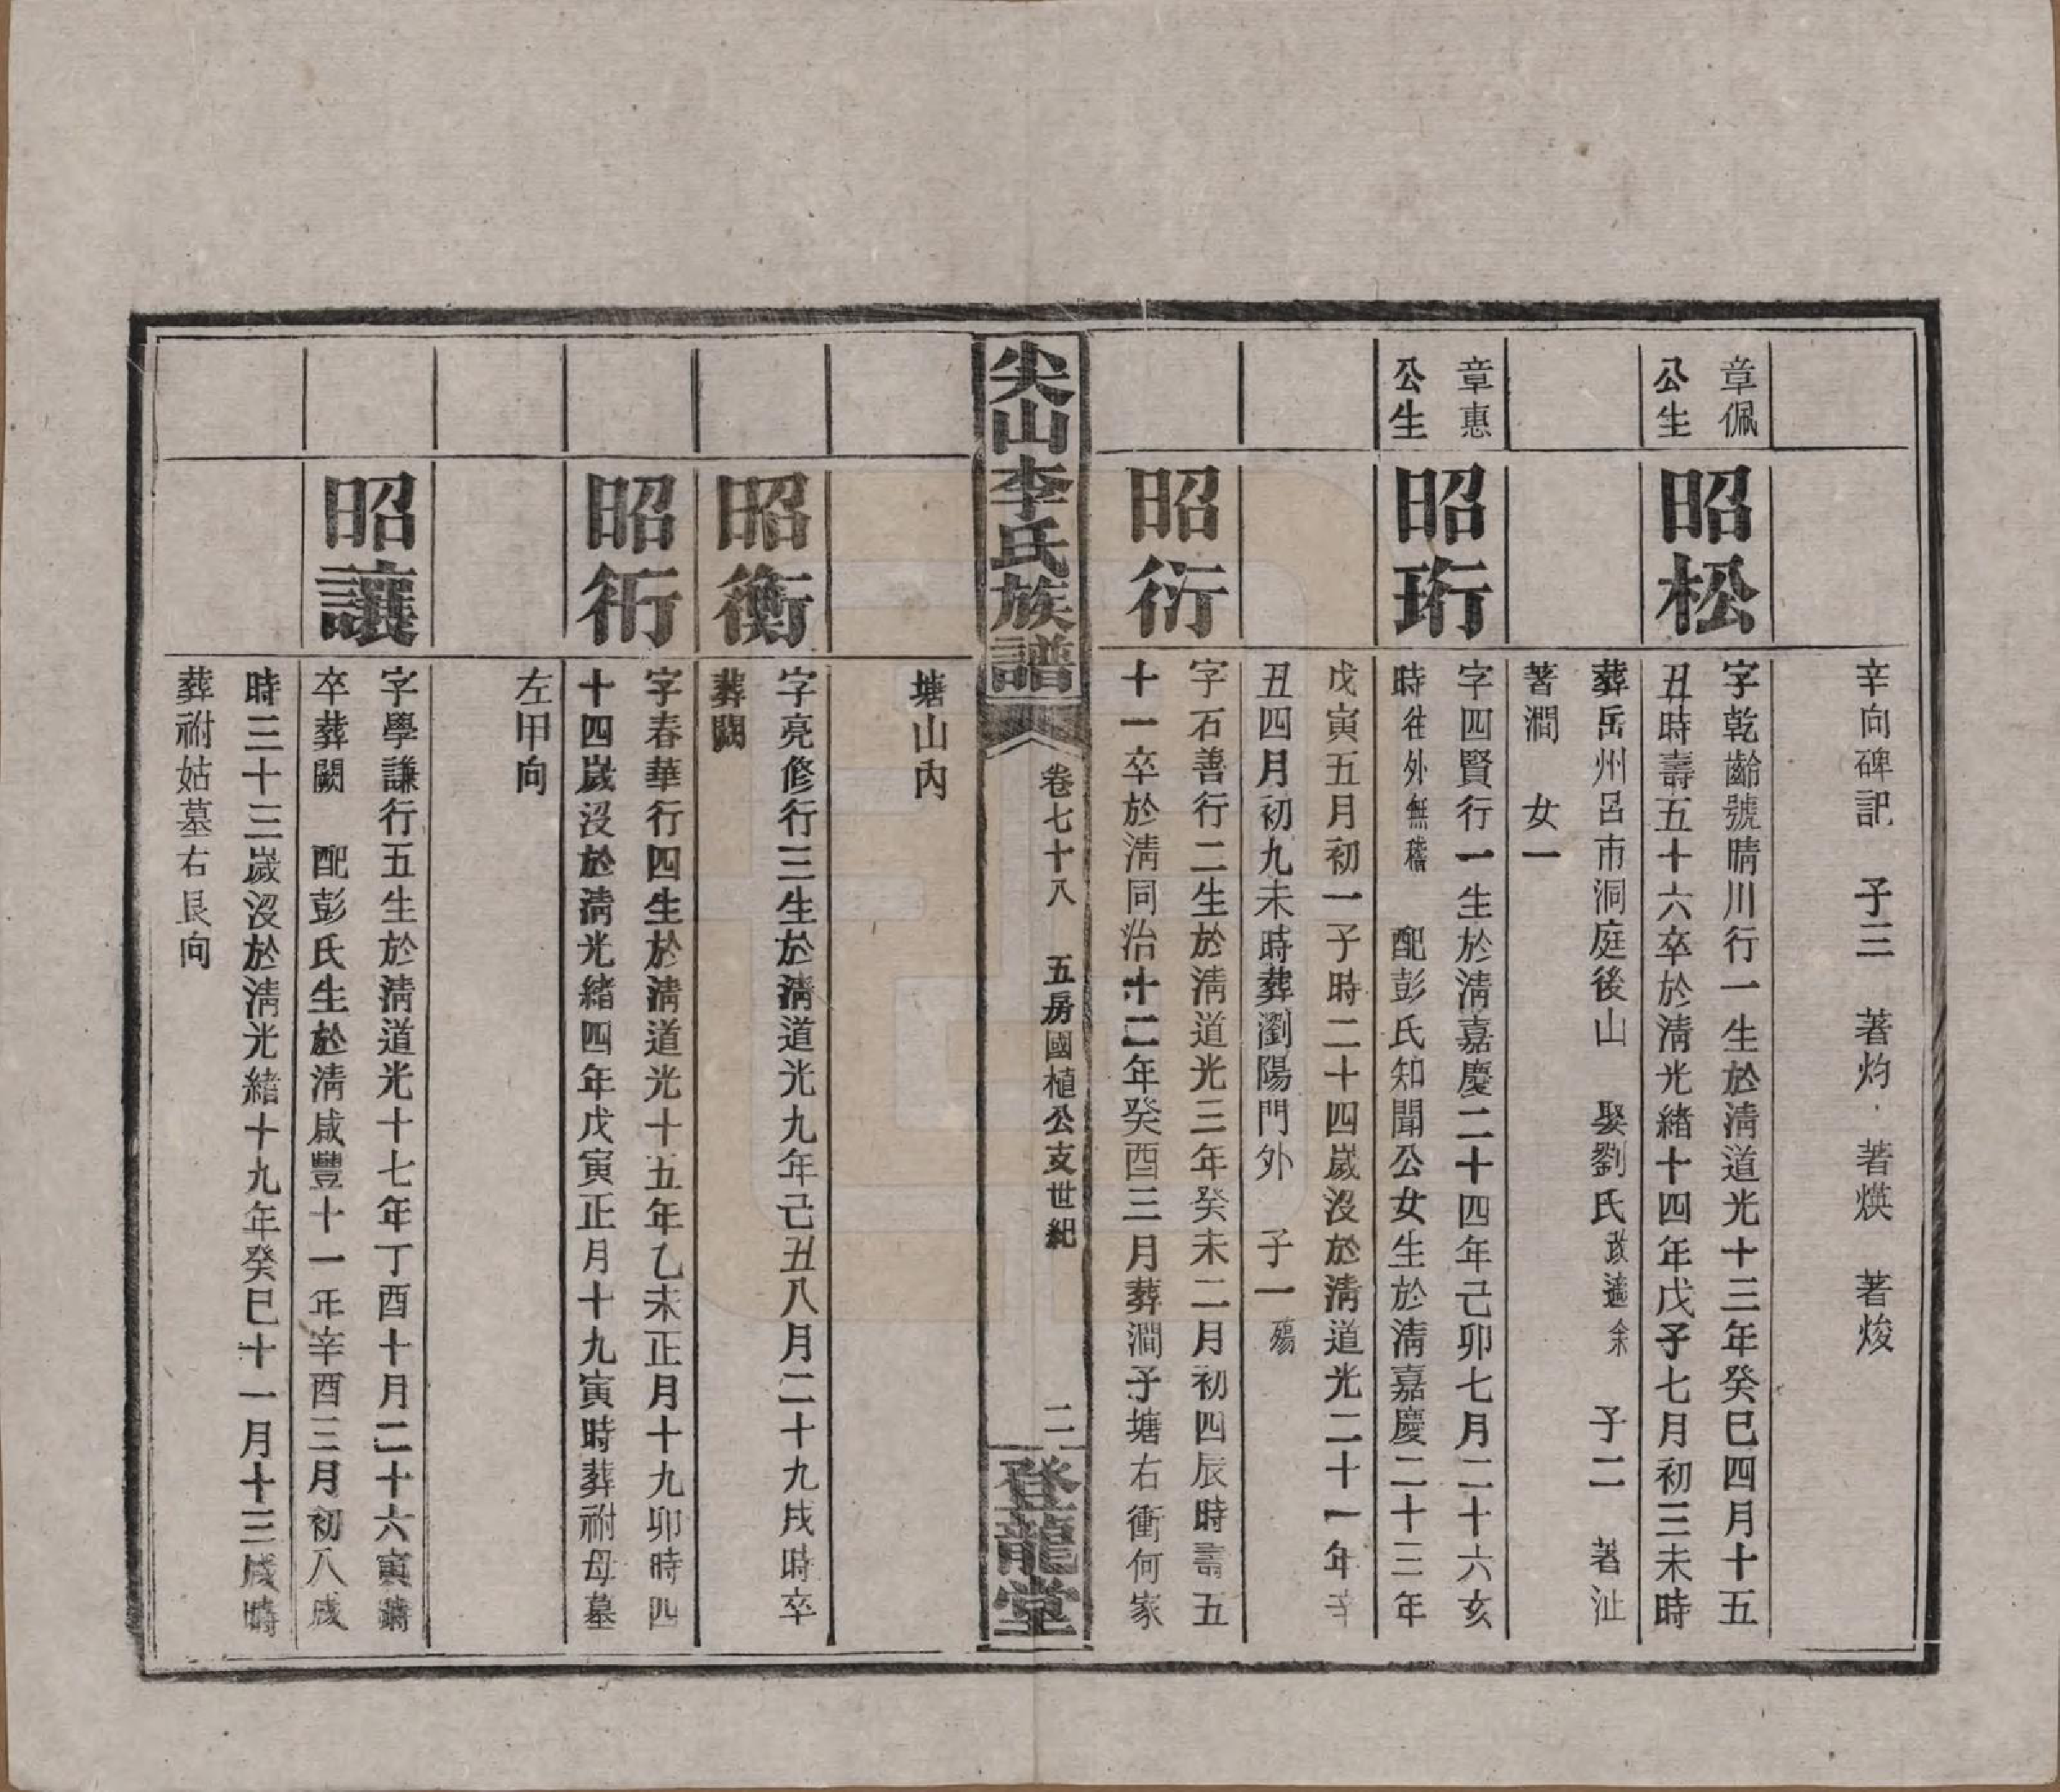 辛向碑記　子三　著灼　著煐　著焌
章佩
公生
昭松
字乾齡號晴川行一生於淸道光十三年癸巳四月十五
丑時壽五十六卒於淸光緒十四年戊子七月初三未時
葬岳州呂市洞庭後山　娶劉氏改適余　子二　著沚
著澗　女一
章惠
公生
昭珩
字四賢行一生於淸嘉慶二十四年己卯七月二十六亥
時往外無稽　配彭氏知聞公女生於淸嘉慶二十三年
戊寅五月初一子時二十四歲沒於淸道光二十一年辛
丑四月初九未時葬瀏陽門外　子一殤
昭衍
字石善行二生於淸道光三年癸未二月初四辰時壽五
十一卒於淸同治十二年癸酉三月葬澗子塘右衝何家
尖山李氏族譜
卷七十八　五房國植公支世紀
二
登龍堂
塘山內
昭衡
字亮修行三生於淸道光九年己丑八月二十九戌時卒
葬闕
昭衎
字春華行四生於淸道光十五年乙未正月十九卯時四
十四歲沒於淸光緒四年戊寅正月十九寅時葬祔母墓
左甲向
昭讓
字學謙行五生於淸道光十七年丁酉十月二十六寅時
卒葬闕　配彭氏生於淸咸豐十一年辛酉三月初八戌
時三十三歲沒於淸光緒十九年癸巳十一月十三戌時
葬祔姑墓右艮向